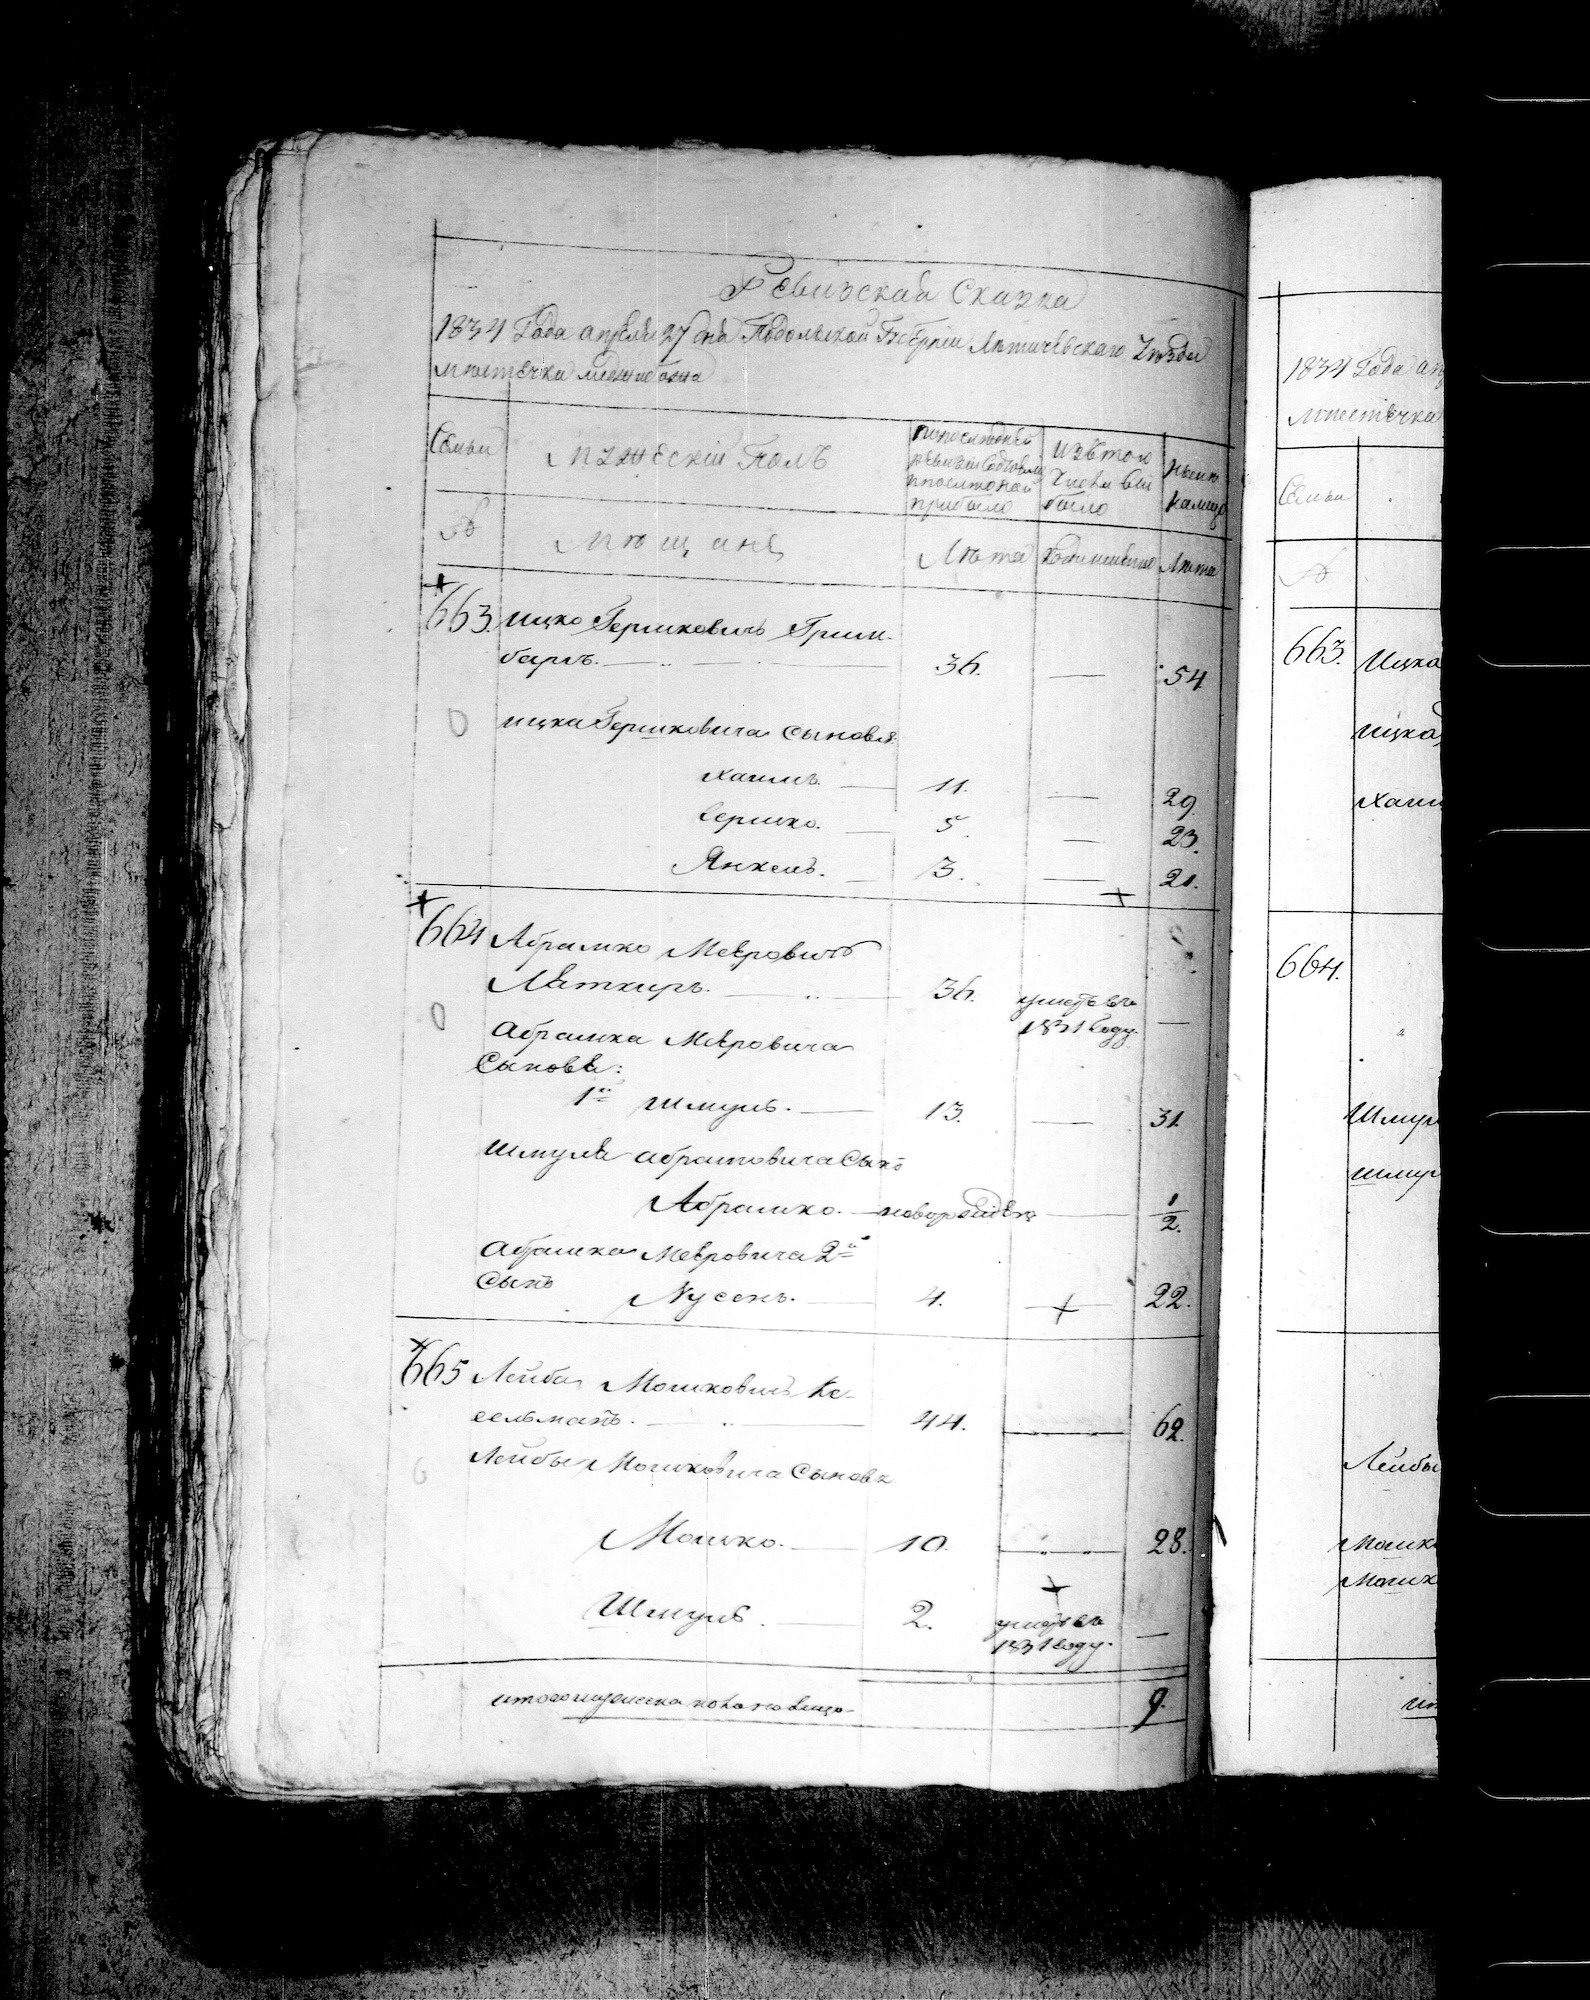 Ревизская Сказка
1834 Года апреля 27 дня Подольской Губернии Летичевского Уезда
местечка меджибожа
Семьи
мужеский Полъ
По последней
ревизии состояло
и после оной
прибыло
Изъ того
Числа вы
было
Ныне на
лицо
№
мещане
Лета
Лета
663. ицко Гершковичъ Грин-
баргъ. 36. — 54
ицка Гершковича сыновья
хаимъ 11. — 29
гершко. 5. — 23.
Янкель. 3. — 21.
664 Абрамко Меерович
36. умеръ въ —
1831 году.
абрамка Мееровича
Сыновья:
1й Шмуль. 13. — 31.
Шмуля абрамовича Сынъ
Абрамко. новорожденъ — 1/2.
абрамка Мееровича 2й
Сынъ
Нусень. 4. — 22.
665 Лейба Мошковичъ Ке-
сельманъ. 44. — 62.
Лейбы Мошковича Сыновья
Мошко. 10. — 28.
Шмуль. 2. умеръ въ —
1831 году.
итого мужеска пола на лицо 9.
1834 Года ап
местечка
Семьи
№
663. Ицка
ицка
хаим
664.
Шмул
шмул
Лейбы
Мошк
Мошк
ит